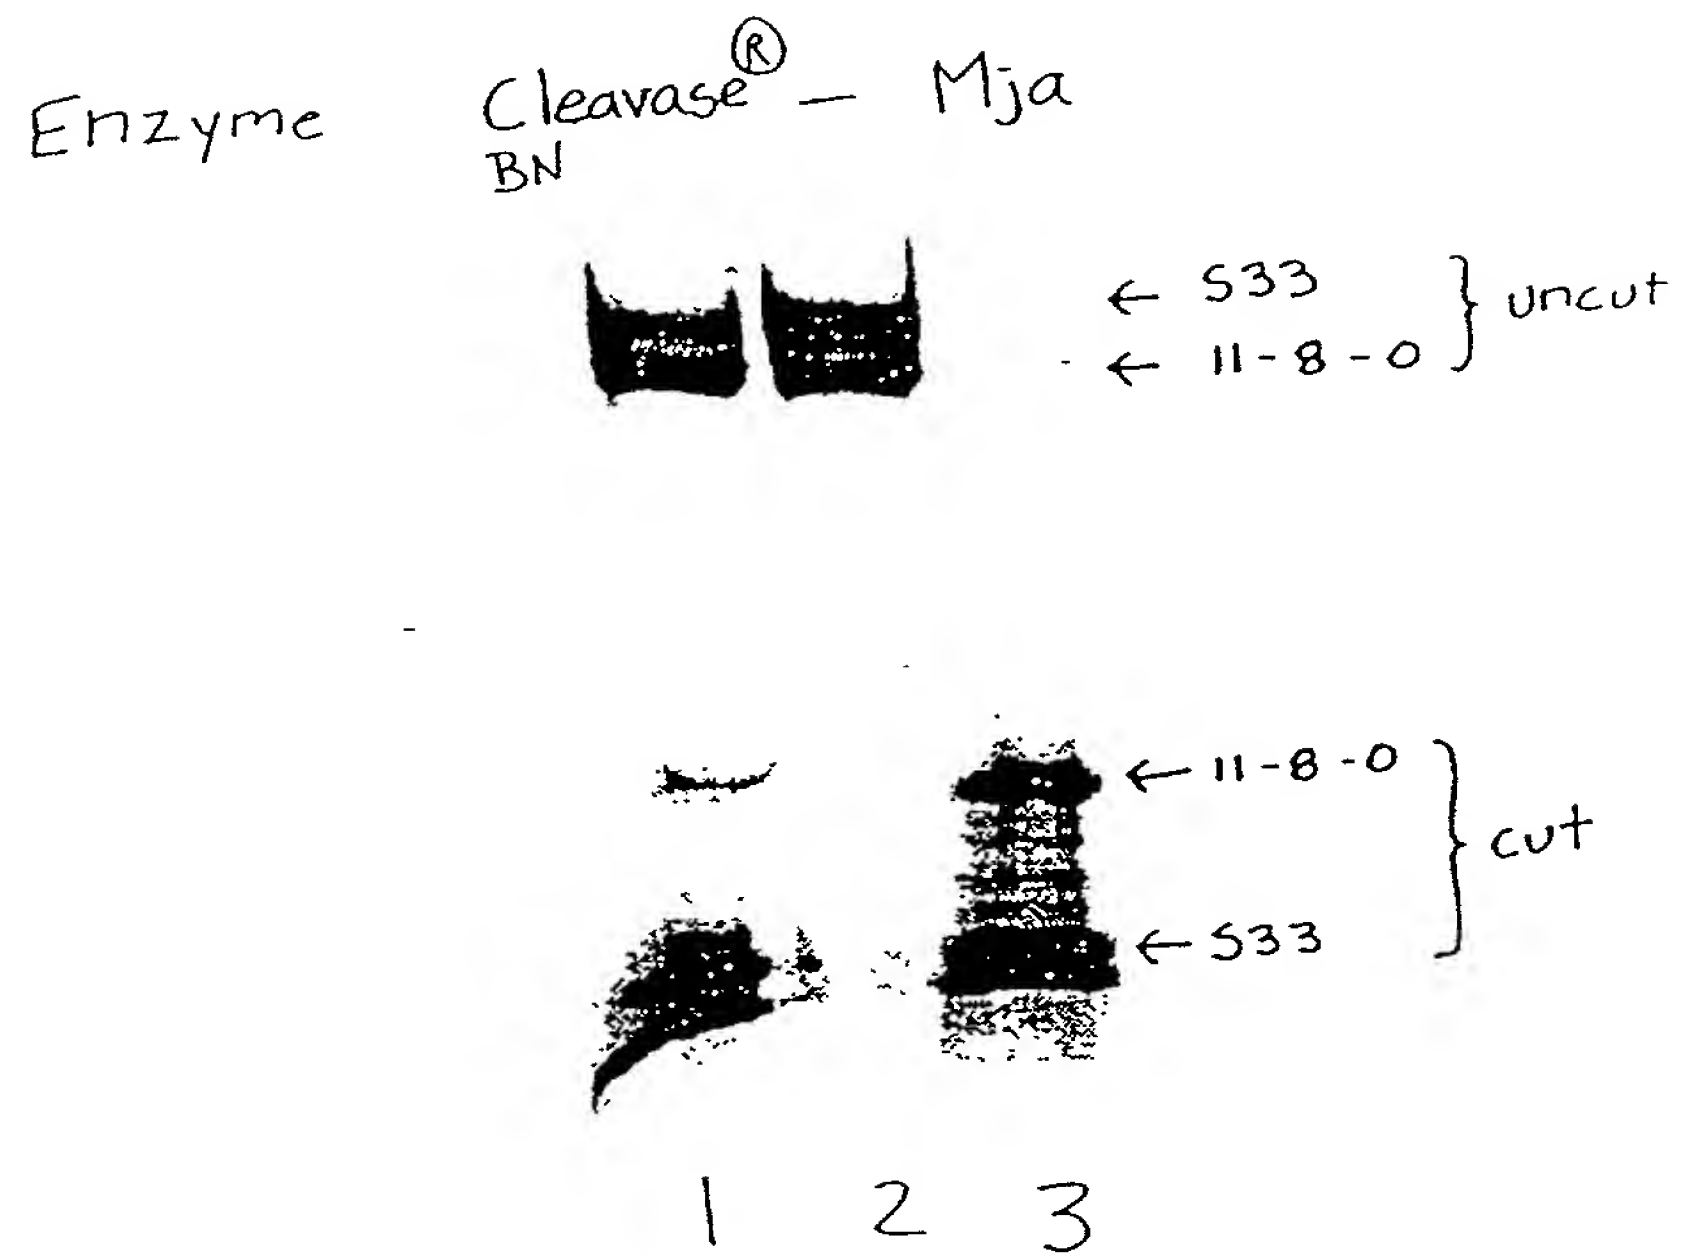 Enzyme Cleavase® – Mja
BN
← S33
← 11-8-0
uncut
← 11-8-0
← S33
cut
1 2 3